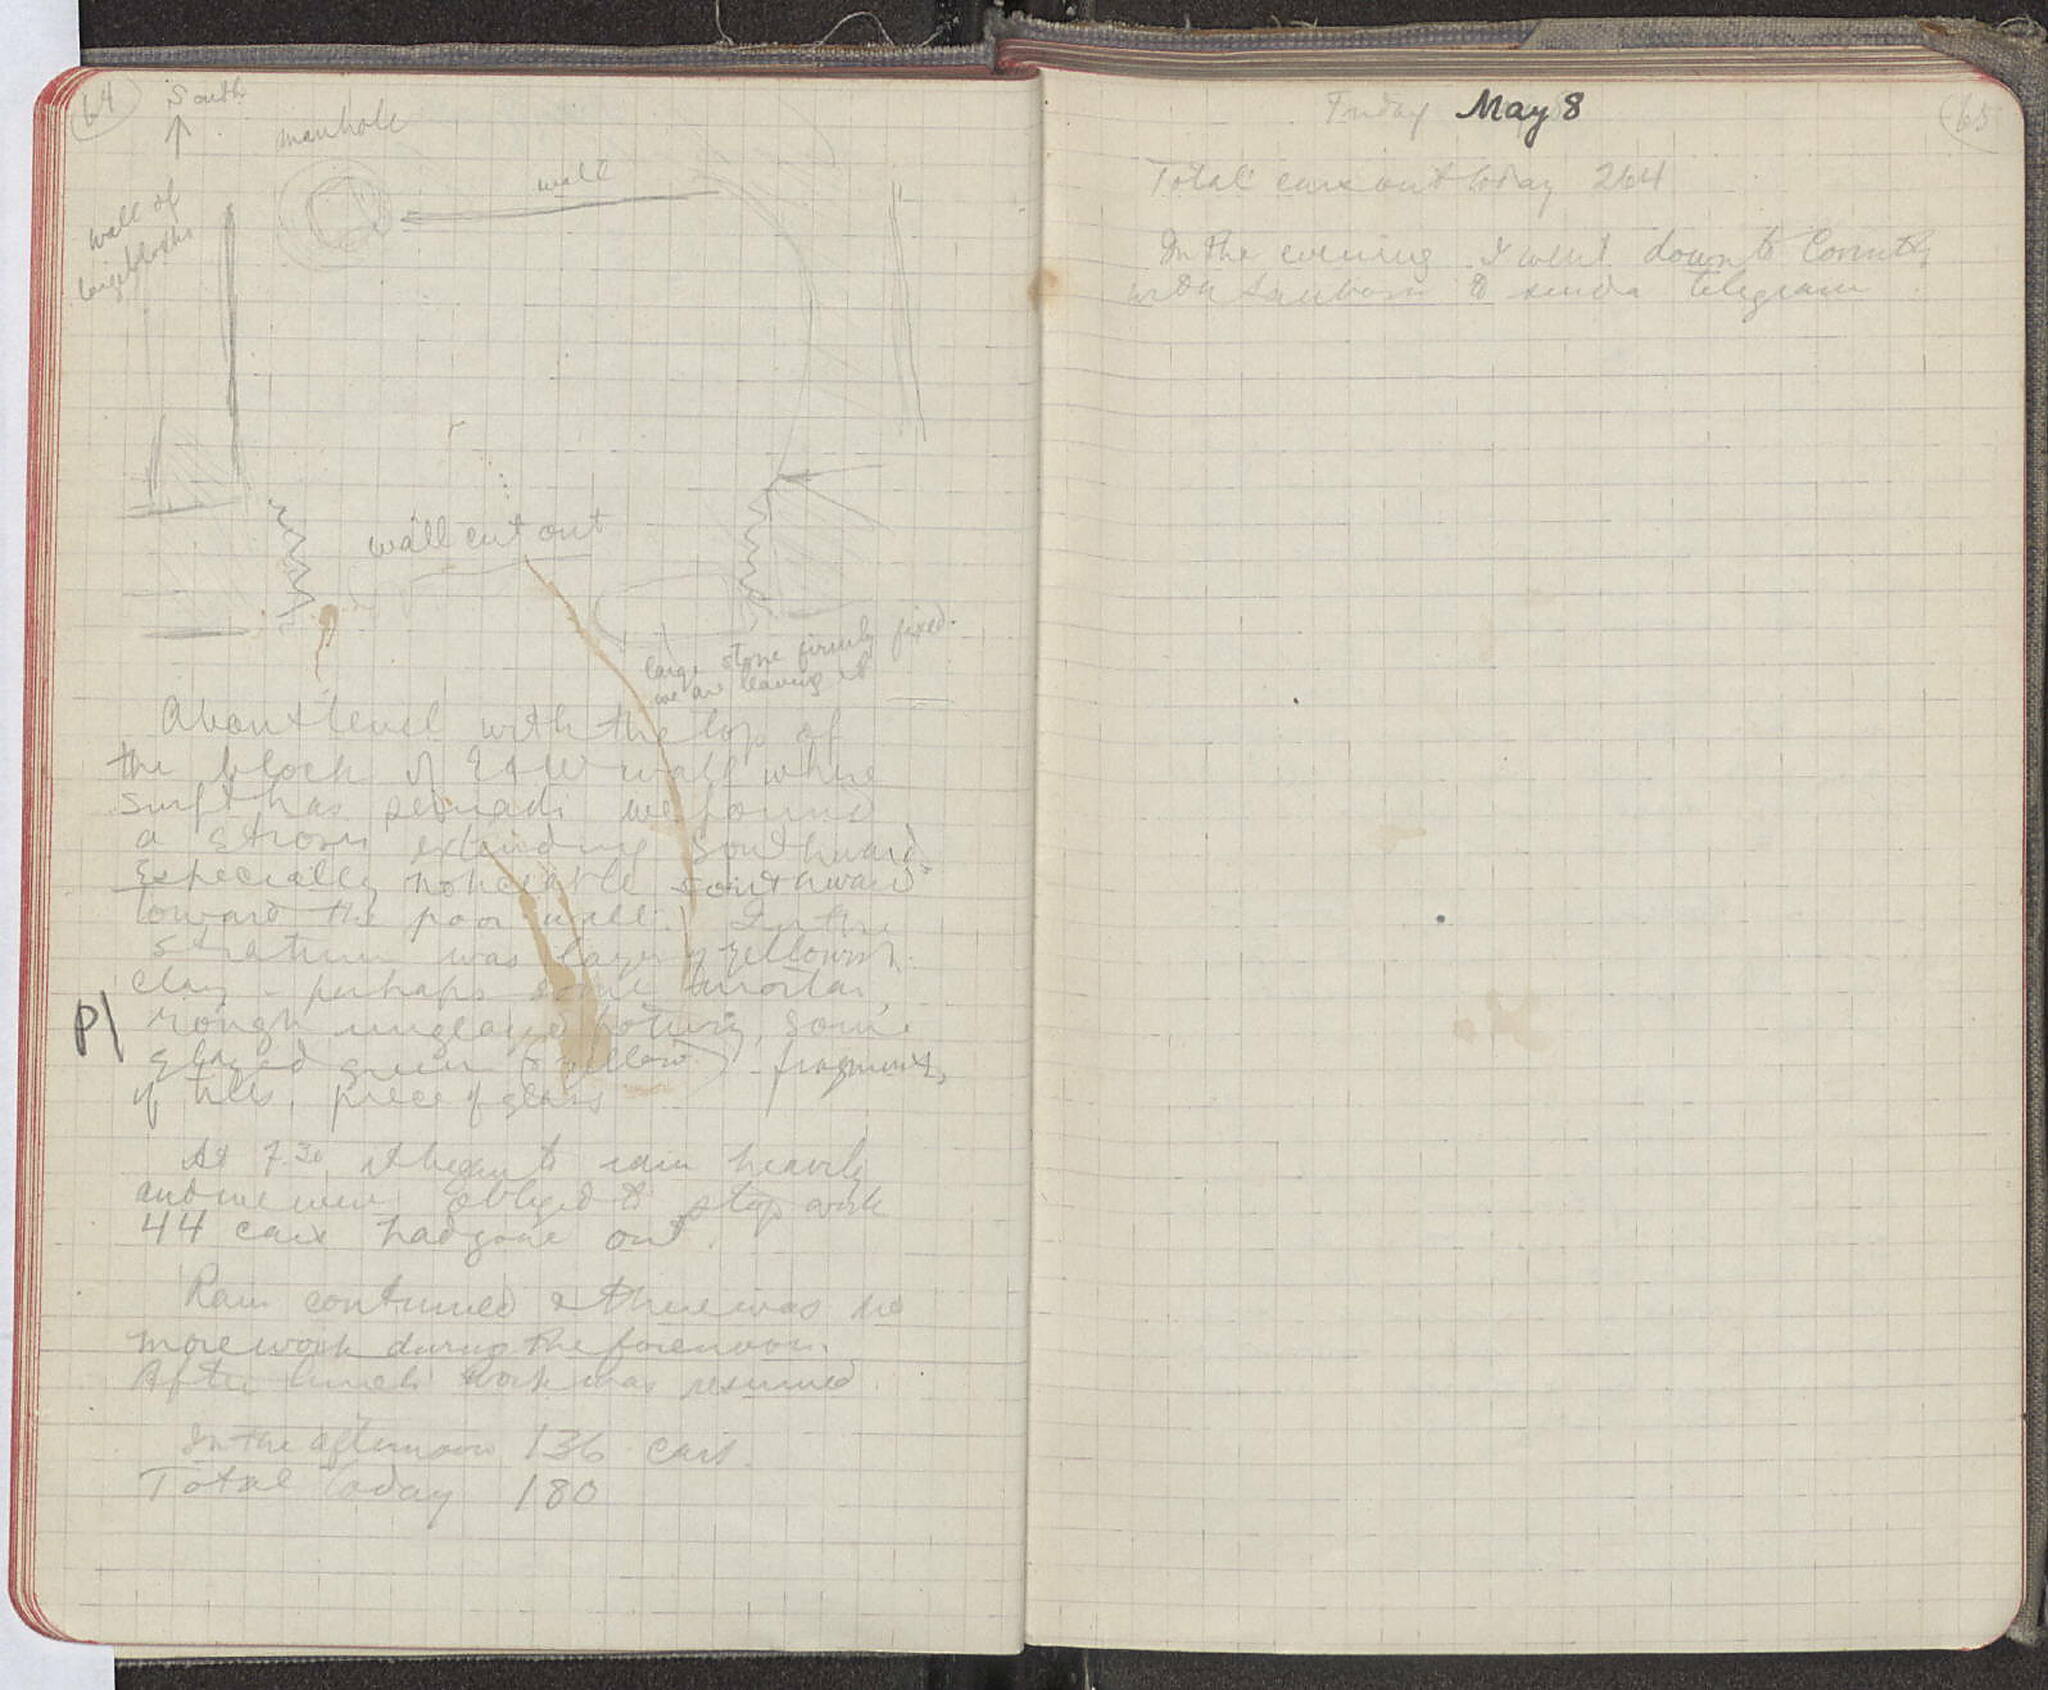 64
South
manhole
wall
wall of
large blocks
wall cut out
large stone firmly fixed.
we are leaving it
About level with the top of
the block of E & W wall where
surf has we found
a strosis extending southward
Especially noticeable southward
toward the poor wall. In the
stratum was layer of yellowish
clay - perhaps some mortar,
P|
rough unglazed pottery, some
glazed green (& yellow) - fragments
of tiles, piece of glass
At 7.30 it began to rain heavily
and we were obliged to stop work
44 cars had gone out.
Rain continued & there was no
more work during the forenoon.
After lunch work was resumed
In the afternoon 136 cars.
Total today 180
65
Friday May 8
Total cars out today 264
In the evening I went down to Corinth
with to send a telegram